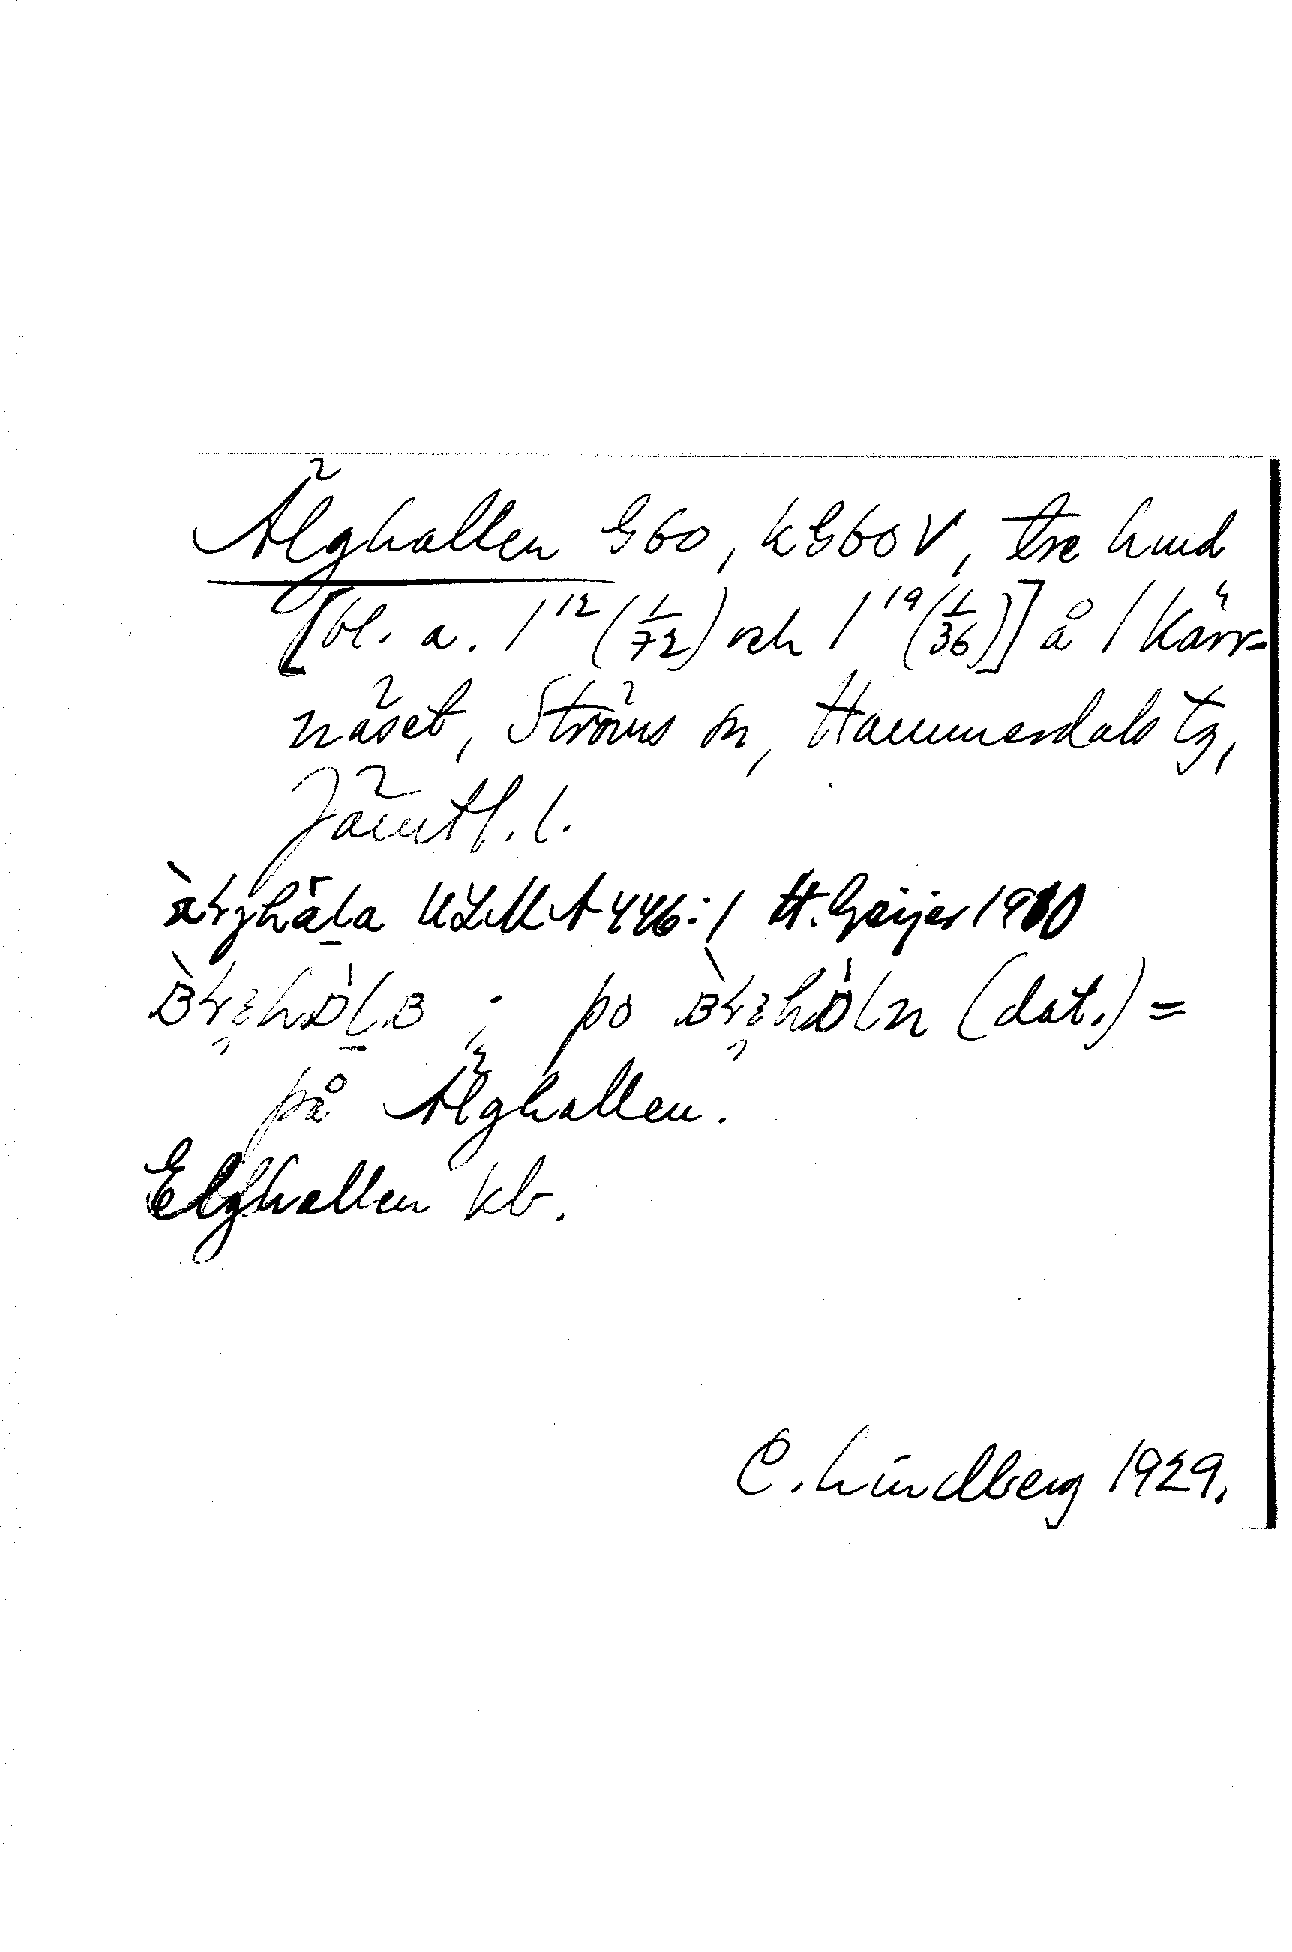 Älghallen G60, kG60V, tre hmd
[bl. a. 1¹²(1/72) och 1¹⁹(1/36)] å 1 Kärr-
näset, Ströms sn, Hammerdals tg,
Jämtl. l.
ULMA 446:1 H. Geijer 1910
; po (dat.) =
på Älghallen.
Elghallen kb.
C. Lindberg 1929.